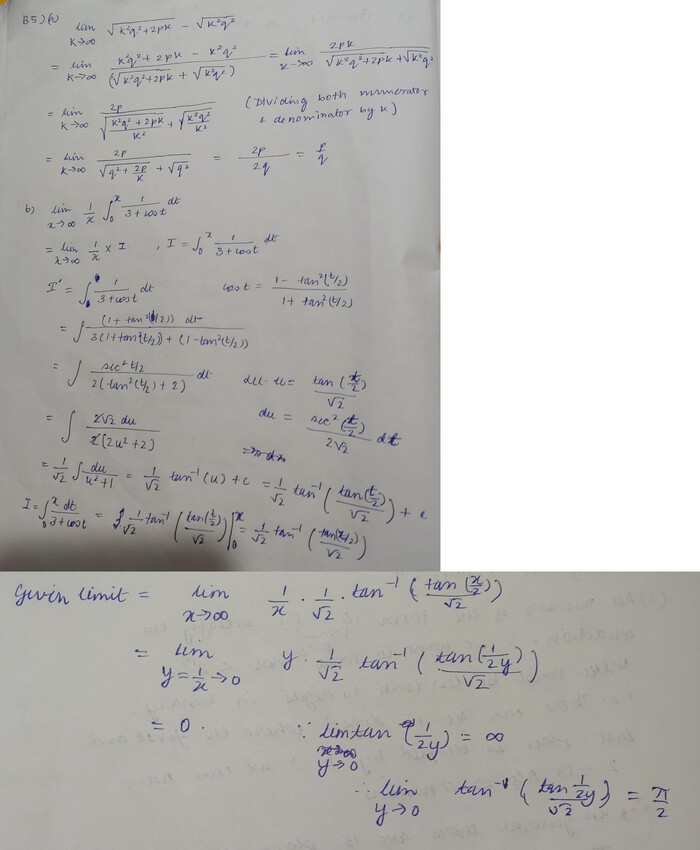 B5) (a) lim k→∞ √(k²q²+2pk) - √(k²q²)
= lim k→∞ (k²q² + 2pk - k²q²)/(√(k²q²+2pk) + √(k²q²)) = lim k→∞ 2pk/(√(k²q²+2pk) + √(k²q²))
= lim k→∞ 2p/(√((k²q²+2pk)/k²) + √(k²q²/k²)) (Dividing both numerator & denominator by k)
= lim k→∞ 2p/(√(q²+2p/k) + √q²) = 2p/2q = p/q
b) lim x→∞ 1/x ∫₀ˣ 1/(3+cost) dt
= lim x→∞ 1/x × I , I = ∫₀ˣ 1/(3+cost) dt
I' = ∫ 1/(3+cost) dt cost = (1 - tan²(t/2))/(1 + tan²(t/2))
= ∫ (1 + tan²(t/2)) dt/(3(1+tan²(t/2)) + (1-tan²(t/2)))
= ∫ sec² t/2/(2(tan²(t/2) + 2)) dt u = tan(t/2)/√2
= ∫ 2√2 du/(2(2u²+2)) du = sec²(t/2)/2√2 dt
= 1/√2 ∫ du/(u²+1) = 1/√2 tan⁻¹(u) + c = 1/√2 tan⁻¹(tan(t/2)/√2) + c
I = ∫₀ˣ dt/(3+cost) = 1/√2 tan⁻¹(tan(t/2)/√2)|₀ˣ = 1/√2 tan⁻¹(tan(x/2)/√2)
Given limit = lim x→∞ 1/x · 1/√2 · tan⁻¹(tan(x/2)/√2)
= lim y=1/x→0 y · 1/√2 tan⁻¹(tan(1/2y)/√2)
= 0. ∵ lim y→0 tan(1/2y) = ∞
∴ lim y→0 tan⁻¹(tan 1/2y/√2) = π/2